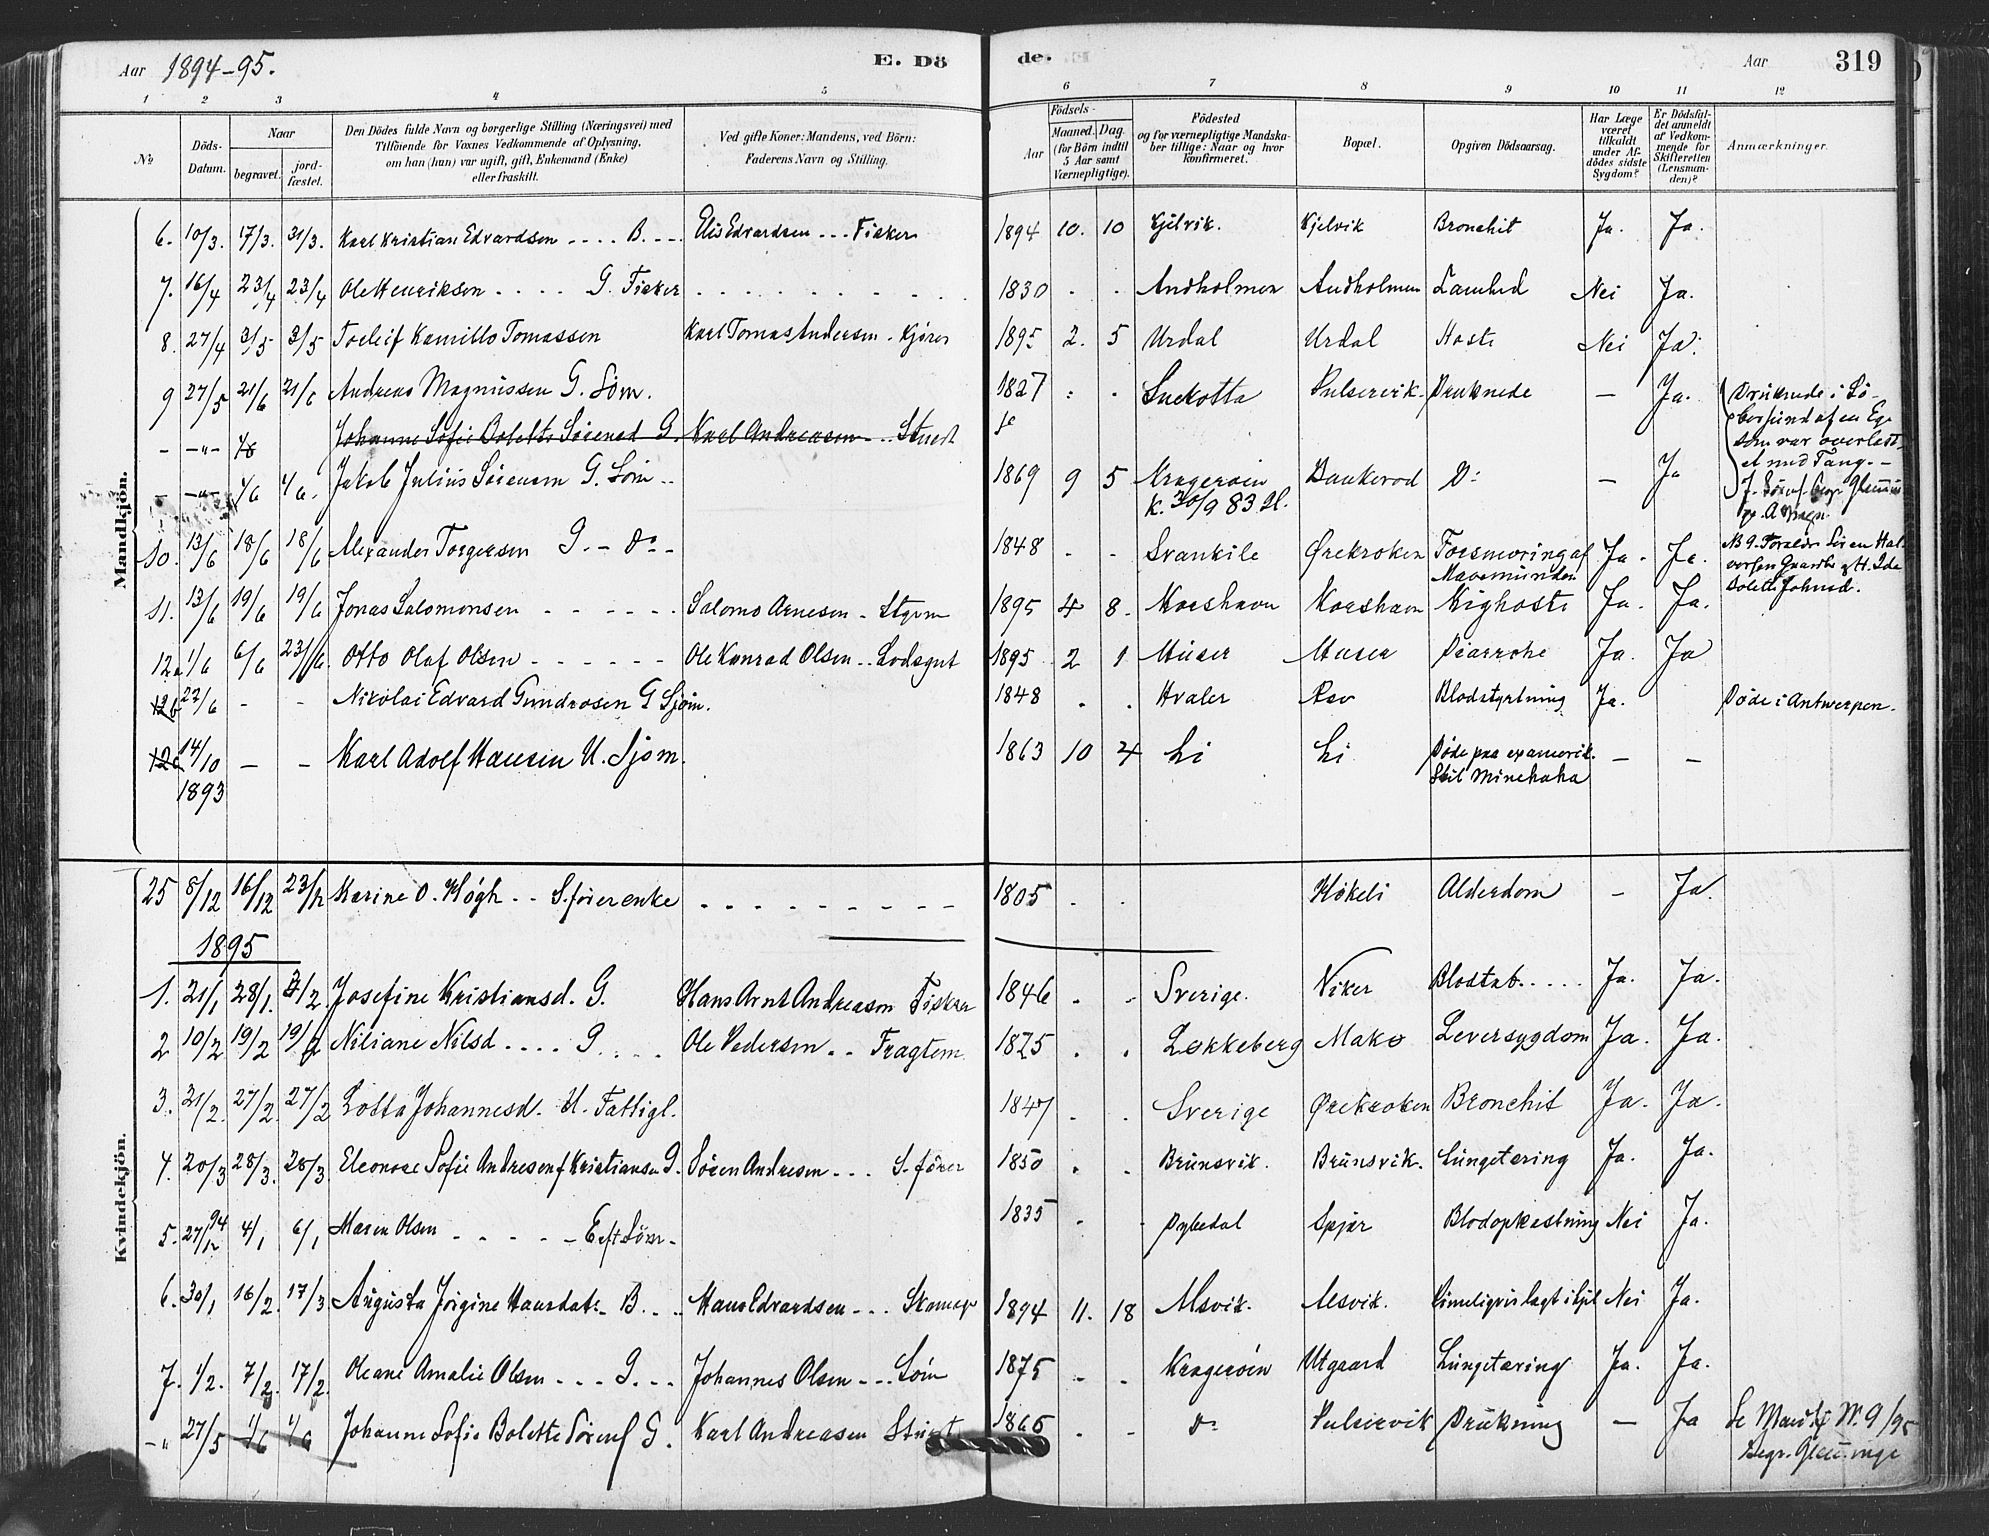 Aar 1894-95. E. Dö de. Aar 319
1 2 3 4 5 6 7 8 9 10 11 12
№ Döds-Datum. Naar begravet. jordfæstet. Den Dödes fulde Navn og borgerlige Stilling (Næringsvei) med Tilföiende for Voxnes Vedkommende af Oplysning, om han (hun) var ugift, gift, Enkemand (Enke) eller fraskilt. Ved gifte Koner: Mandens, ved Börn: Faderens Navn og Stilling. Födsels- Aar Maaned. Dag. (for Börn indtil 5 Aar samt Værnepligtige). Födested og for værnepligtige Mandskaber tillige: Naar og hvor konfirmeret. Bopæl. Opgiven Dödsaarsag. Har Læge været tilkaldt under Afdödes sidste Sygdom? Er Dödsfaldet anmeldt af Vedkommende for Skifteretten (Lensmanden)? Anmærkninger.
Mandkjön.
6. 10/3. 17/3. 31/3. Karl Kristian Edvardsen .... B. ... Elis Edvardsen ... Fisker 1894 10. 10 Kjelvik. Kjelvik Bronchit Ja. Ja.
7. 16/4 23/4 23/4 Ole Henriksen .... G. Fisker 1830 . . Andholmen Andholmen Lamhed Nei Ja.
8. 27/4 3/5 3/5 Torleif Kamillo Tomassen Karl Tomas Andersen . Kjører 1895 2. 5 Urdal Urdal Hoste Nei Ja.
9 27/5 21/6 21/6 Andreas Magnussen G. Söm. 1827 . . Pulservik. Druknede — Ja. Druknede i Sö-
- -"- Johanne Sofie Bolette Sörensd G. Karl Andreasen .. Stuert som var overlast-
- -"- 1/6 1/6. Jakob Julius Sörensen G. Söm .. 1869 9 5 Kragerøen Bankerod D: — Ja et med Tang. -
K. 30/9 83
10. 13/6 18/6 18/6 Alexander Torgersen G. - Do - 1848 - - Svankile Ørekroken Forsnevring af Mavemunden Ja. Ja.
Bolette Johnsd.
11. 13/6 19/6 19/6 Jonas Salomonsen ...... Salomo Arnesen - Styrm 1895 4 8. Korshavn Korshavn Kighoste Ja. Ja.
12a 1/6 6/6 23/6. Otto Olaf Olsen ...... Ole Konrad Olsen .. Lodsgut 1895 2 1 Muser Muser Diarrohe Ja. Ja
12b 22/6 - - Nikolai Edvard Gundrosen G Sjöm. 1848 . . Hvaler Rev Blodstyrtning Ja. Döde i Antwerpen.
12c 14/10 1893 - - Karl Adolf Hansen U. Sjöm. 1863 10 4 Li Li Döde paa en amerik. Skib Minehaha — —
Kvindekjön.
25 8/12 16/12 23/12 Karine O. Høgh .. S.förerenke 1805 . . Høkeli Alderdom - Ja.
1895
1. 21/1 28/1. 3/2. Josefine Kristiansd. G. Hans Arnt Andreasen Fisker 1846 . . Sverige. Viker Blodtab..... Ja. Ja.
2 10/2 19/2 19/2 Niliane Nilsd .... G .... Ole Pedersen .. Fragtem. 1825 . . Løkkeberg Makø Leversygdom Ja. Ja.
3. 21/2. 27/2. 27/2 Lotta Johannesd. U. Fattigl. 1847 . . Sverige Ørekroken Bronchit Ja. Ja.
4. 20/3 28/3. 28/3. Eleonore Sofie Andresen f Kristiansen G. Sören Andresen ... S.förer 1850 . . Brunsvik. Brunsvik. Lungetæring Ja. Ja.
5. 27/12 94 4/1 6/1 Maren Olsen ..... E eft Söm- 1835 . . Dybedal Spjær Blodopkastning Nei Ja.
6. 30/1 16/2. 17/3 Augusta Jörgine Hansdatr. B. .. Hans Edvardsen ... Skomager 1894 11. 18 Alsvik. Alsvik. Rimeligvis lagt ihjel Nei Ja.
7. 1/2. 7/2. 17/2. Oleane Amalie Olsen ... G. .. Johannes Olsen ... Söm 1875 - . Kragerøen Utgaard Lungetæring Ja. Ja.
-" 27/5 1/6 1/6 Johanne Sofie Bolette Sörensd G. Karl Andreasen Stuert 1865 . - Do Pulservik Drukning — Ja Se Mandkj No. 9/95
Begr. Glemminge